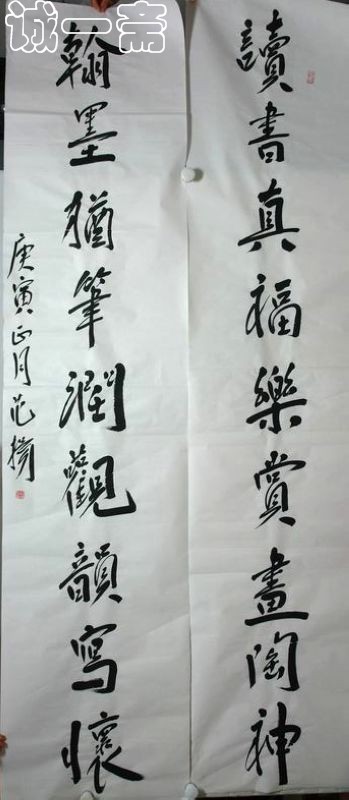 讀書真福樂賞畫陶神
翰墨猶筆潤觀韻寫懷
庚寅正月范揚
诚一斋